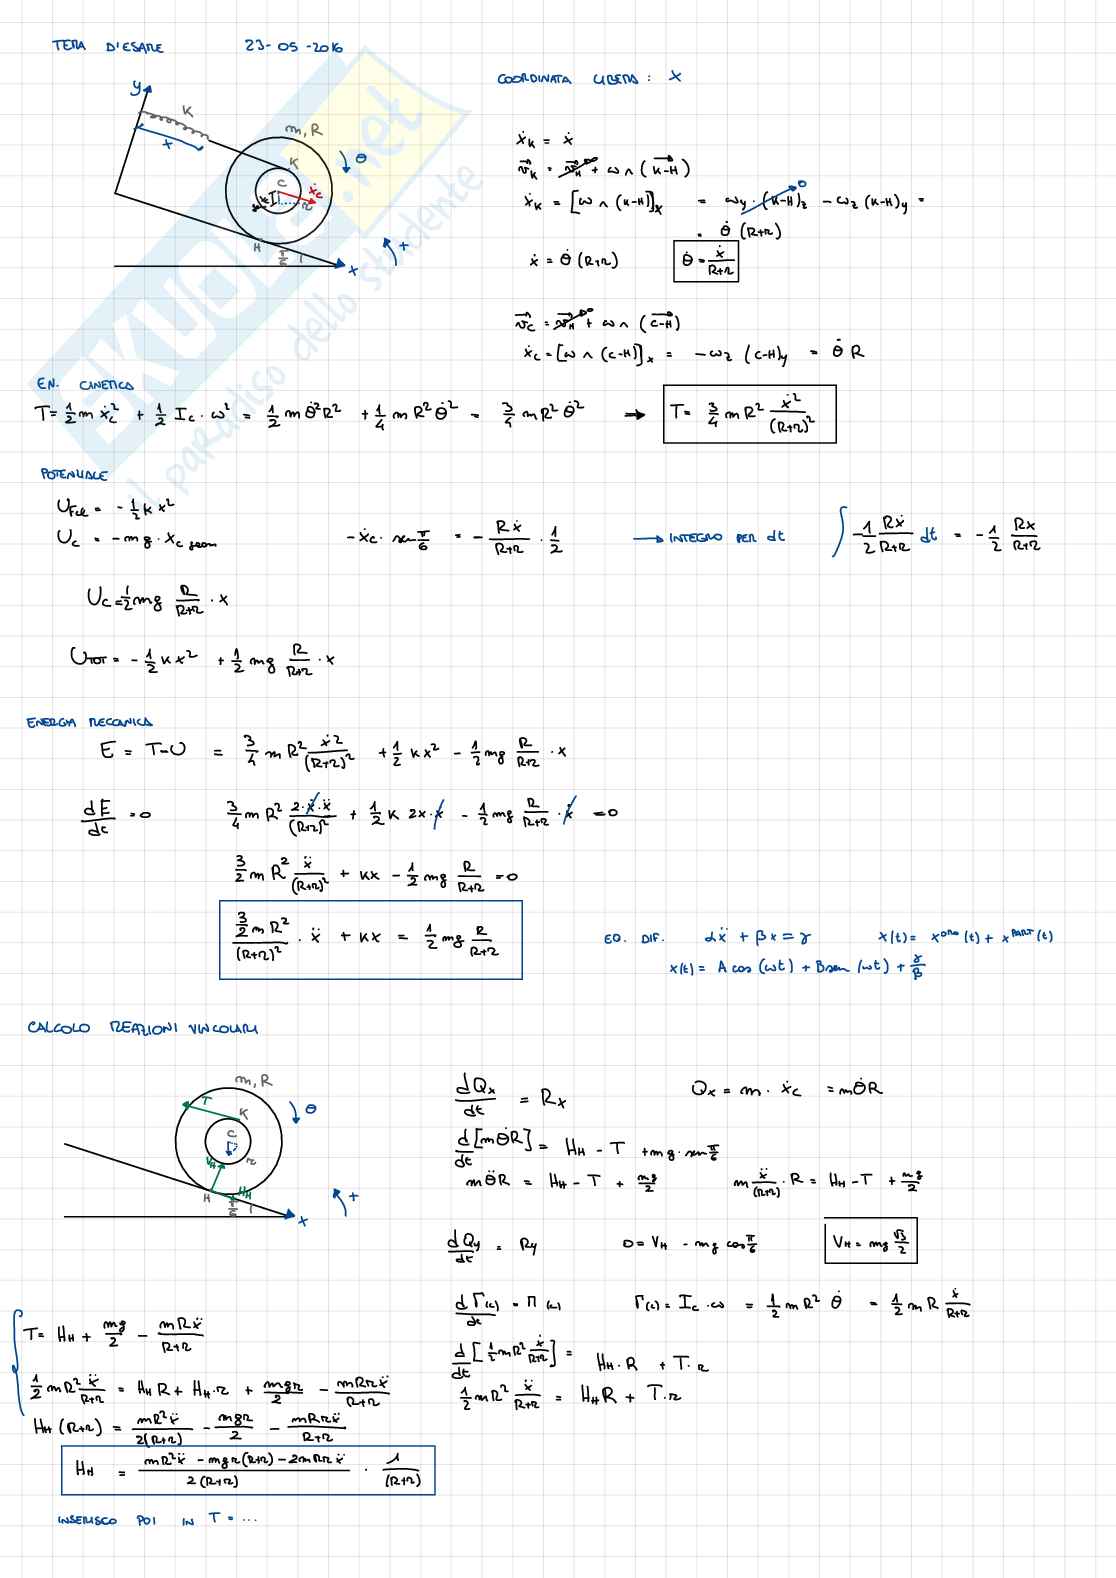 TEMA D'ESAME 23-05-2016
COORDINATA LIBERA: x
y
K
x
m, R
θ
K
C
ẋc
r
H
π/6
x
+
ẋ_K = ẋ
v_K = v_H⁰ + ω ∧ (K-H)
ẋ_K = [ω ∧ (K-H)]_x = ω_y · (K-H)_z⁰ - ω_z (K-H)_y =
= θ̇ (R+r)
ẋ = θ̇ (R+r) θ̇ = ẋ/(R+r)
v_C = v_H⁰ + ω ∧ (C-H)
ẋ_C = [ω ∧ (C-H)]_x = -ω_z (C-H)_y = θ̇ R
EN. CINETICA
T = 1/2 m ẋ_C² + 1/2 I_C · ω² = 1/2 m θ̇² R² + 1/4 m R² θ̇² = 3/4 m R² θ̇² → T = 3/4 m R² ẋ²/(R+r)²
POTENZIALE
U_Fel = -1/2 k x²
U_C = -mg · x_C geom -ẋ_C · sen π/6 = - Rẋ/(R+r) · 1/2 → INTEGRO PER dt ∫ -1/2 Rẋ/(R+r) dt = -1/2 Rx/(R+r)
U_C = 1/2 mg R/(R+r) · x
U_TOT = -1/2 k x² + 1/2 mg R/(R+r) · x
ENERGIA MECCANICA
E = T-U = 3/4 m R² ẋ²/(R+r)² + 1/2 k x² - 1/2 mg R/(R+r) · x
dE/dt = 0 3/4 m R² 2·ẋ·ẍ/(R+r)² + 1/2 k 2x·ẋ - 1/2 mg R/(R+r) · ẋ = 0
3/2 m R² ẍ/(R+r)² + kx - 1/2 mg R/(R+r) = 0
3/2 m R²/(R+r)² · ẍ + kx = 1/2 mg R/(R+r)
EQ. DIF. αẍ + βx = γ x(t) = x^OMO(t) + x^PART(t)
x(t) = A cos(ωt) + B sen(ωt) + γ/β
CALCOLO REAZIONI VINCOLARI
m, R
T
K
θ
C
V_H
r
H
H_H
π/6
x
+
dQ_x/dt = R_x Q_x = m · ẋ_C = mθ̇R
d/dt [mθ̇R] = H_H - T + mg · sen π/6
mθ̈R = H_H - T + mg/2 m ẍ/(R+r) · R = H_H - T + mg/2
dQ_y/dt = R_y 0 = V_H - mg cos π/6 V_H = mg √3/2
dΓ(c)/dt = Π(c) Γ(c) = I_C · ω = 1/2 m R² θ̇ = 1/2 m R ẋ/(R+r)
d/dt [1/2 m R² ẋ/(R+r)] = H_H · R + T · r
1/2 m R² ẍ/(R+r) = H_H R + T · r
T = H_H + mg/2 - mRẍ/(R+r)
1/2 m R² ẍ/(R+r) = H_H R + H_H · r + mgr/2 - mRrẍ/(R+r)
H_H (R+r) = mR²ẍ/2(R+r) - mgr/2 - mRrẍ/(R+r)
H_H = (mR²ẍ - mgr(R+r) - 2mRrẍ)/2(R+r) · 1/(R+r)
INSERISCO POI IN T = ...
SKUOLA.net
il paradiso dello studente